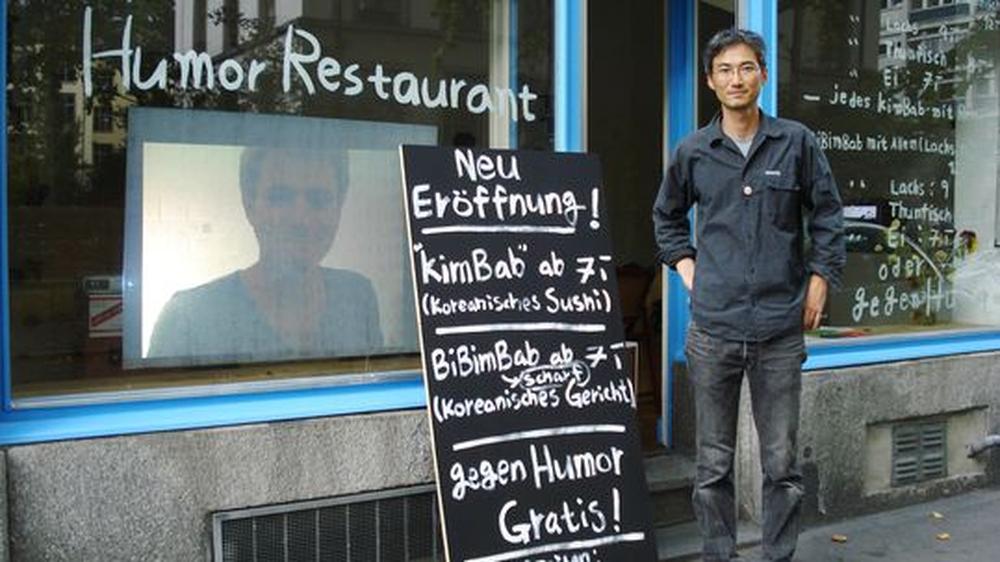 Humor Restaurant
Neu
Eröffnung!
"KimBab" ab 7.-
(Koreanisches Sushi)
BiBimBab ab 7.-
scharf
(Koreanisches Gericht)
gegen Humor
Gratis!
" Lachs: 9.-
" Thunfisch
" Ei: 7.-
— jedes KimBab mit
BiBimBab mit Allem (Lachs
" Lachs: 9
" Thunfisch
" Ei: 7.-
oder
gegen Hu